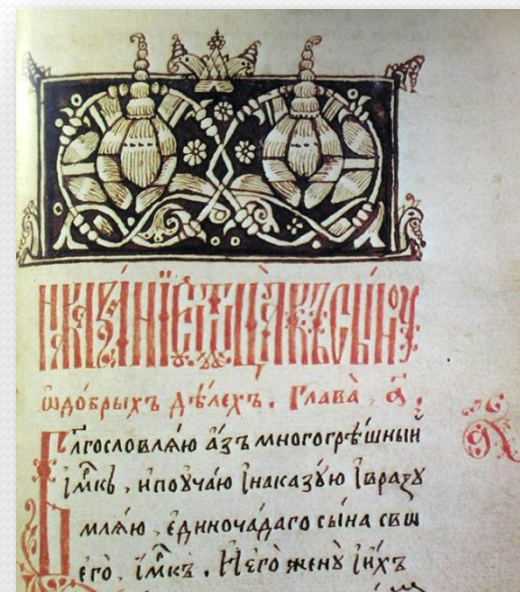 НАКАЗАНИЕ ѾЦА КЪ СЫНУ
Ѡ добрыхъ дѣлехъ. Глава, а҃.
Бл҃гословлѧ́ю а́зъ многогрѣ́шныи
і҆м҃къ, и поучаю і҆наказꙋ́ю і҆вразꙋ
млѧ́ю, є҆диночѧ́даго сы́на сво
его, і҆м҃къ. И҆ его женꙋ̀ і҆и́хъ